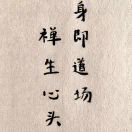 身即道场
禅生心头